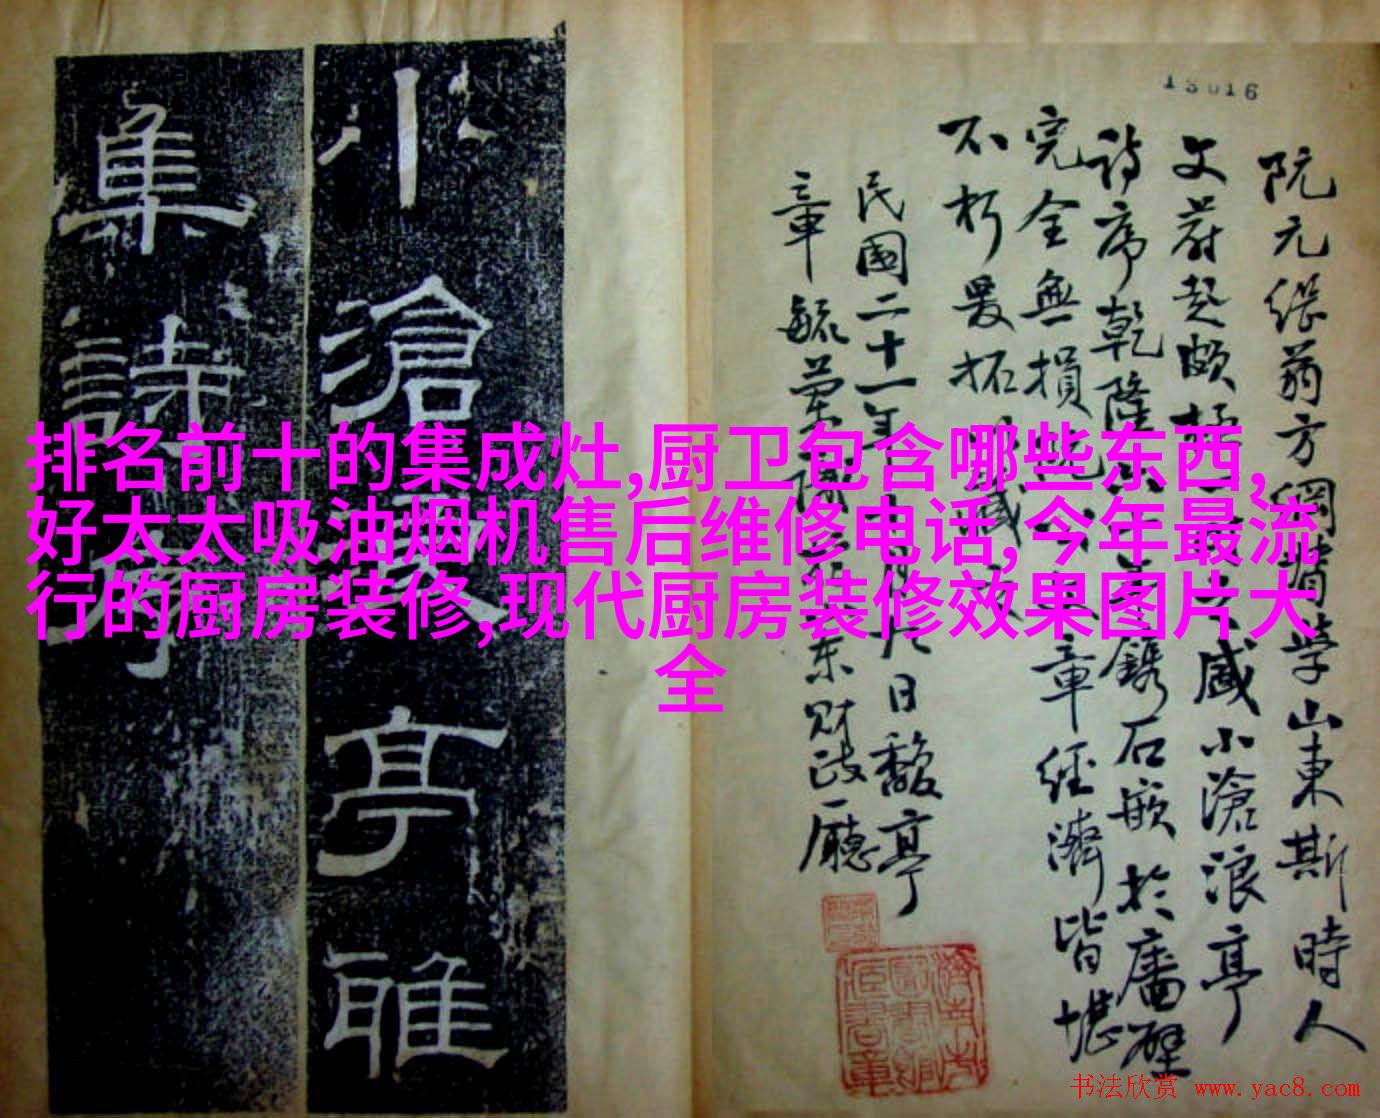 排名前十的集成灶,厨卫包含哪些东西,
好太太吸油烟机售后维修电话,今年最流
行的厨房装修,现代厨房装修效果图片大
全
13016
阮元繼翁方綱督學山東斯時人
文蔚起頗極盛小滄浪亭
詩序乾隆鐫石嵌於廧壁
完全無損文章經濟皆堪
不朽爰拓
民國二十一年日馥亭
章毓東財政廳
小滄浪亭雅
集詩序
书法欣赏 www.yac8.com